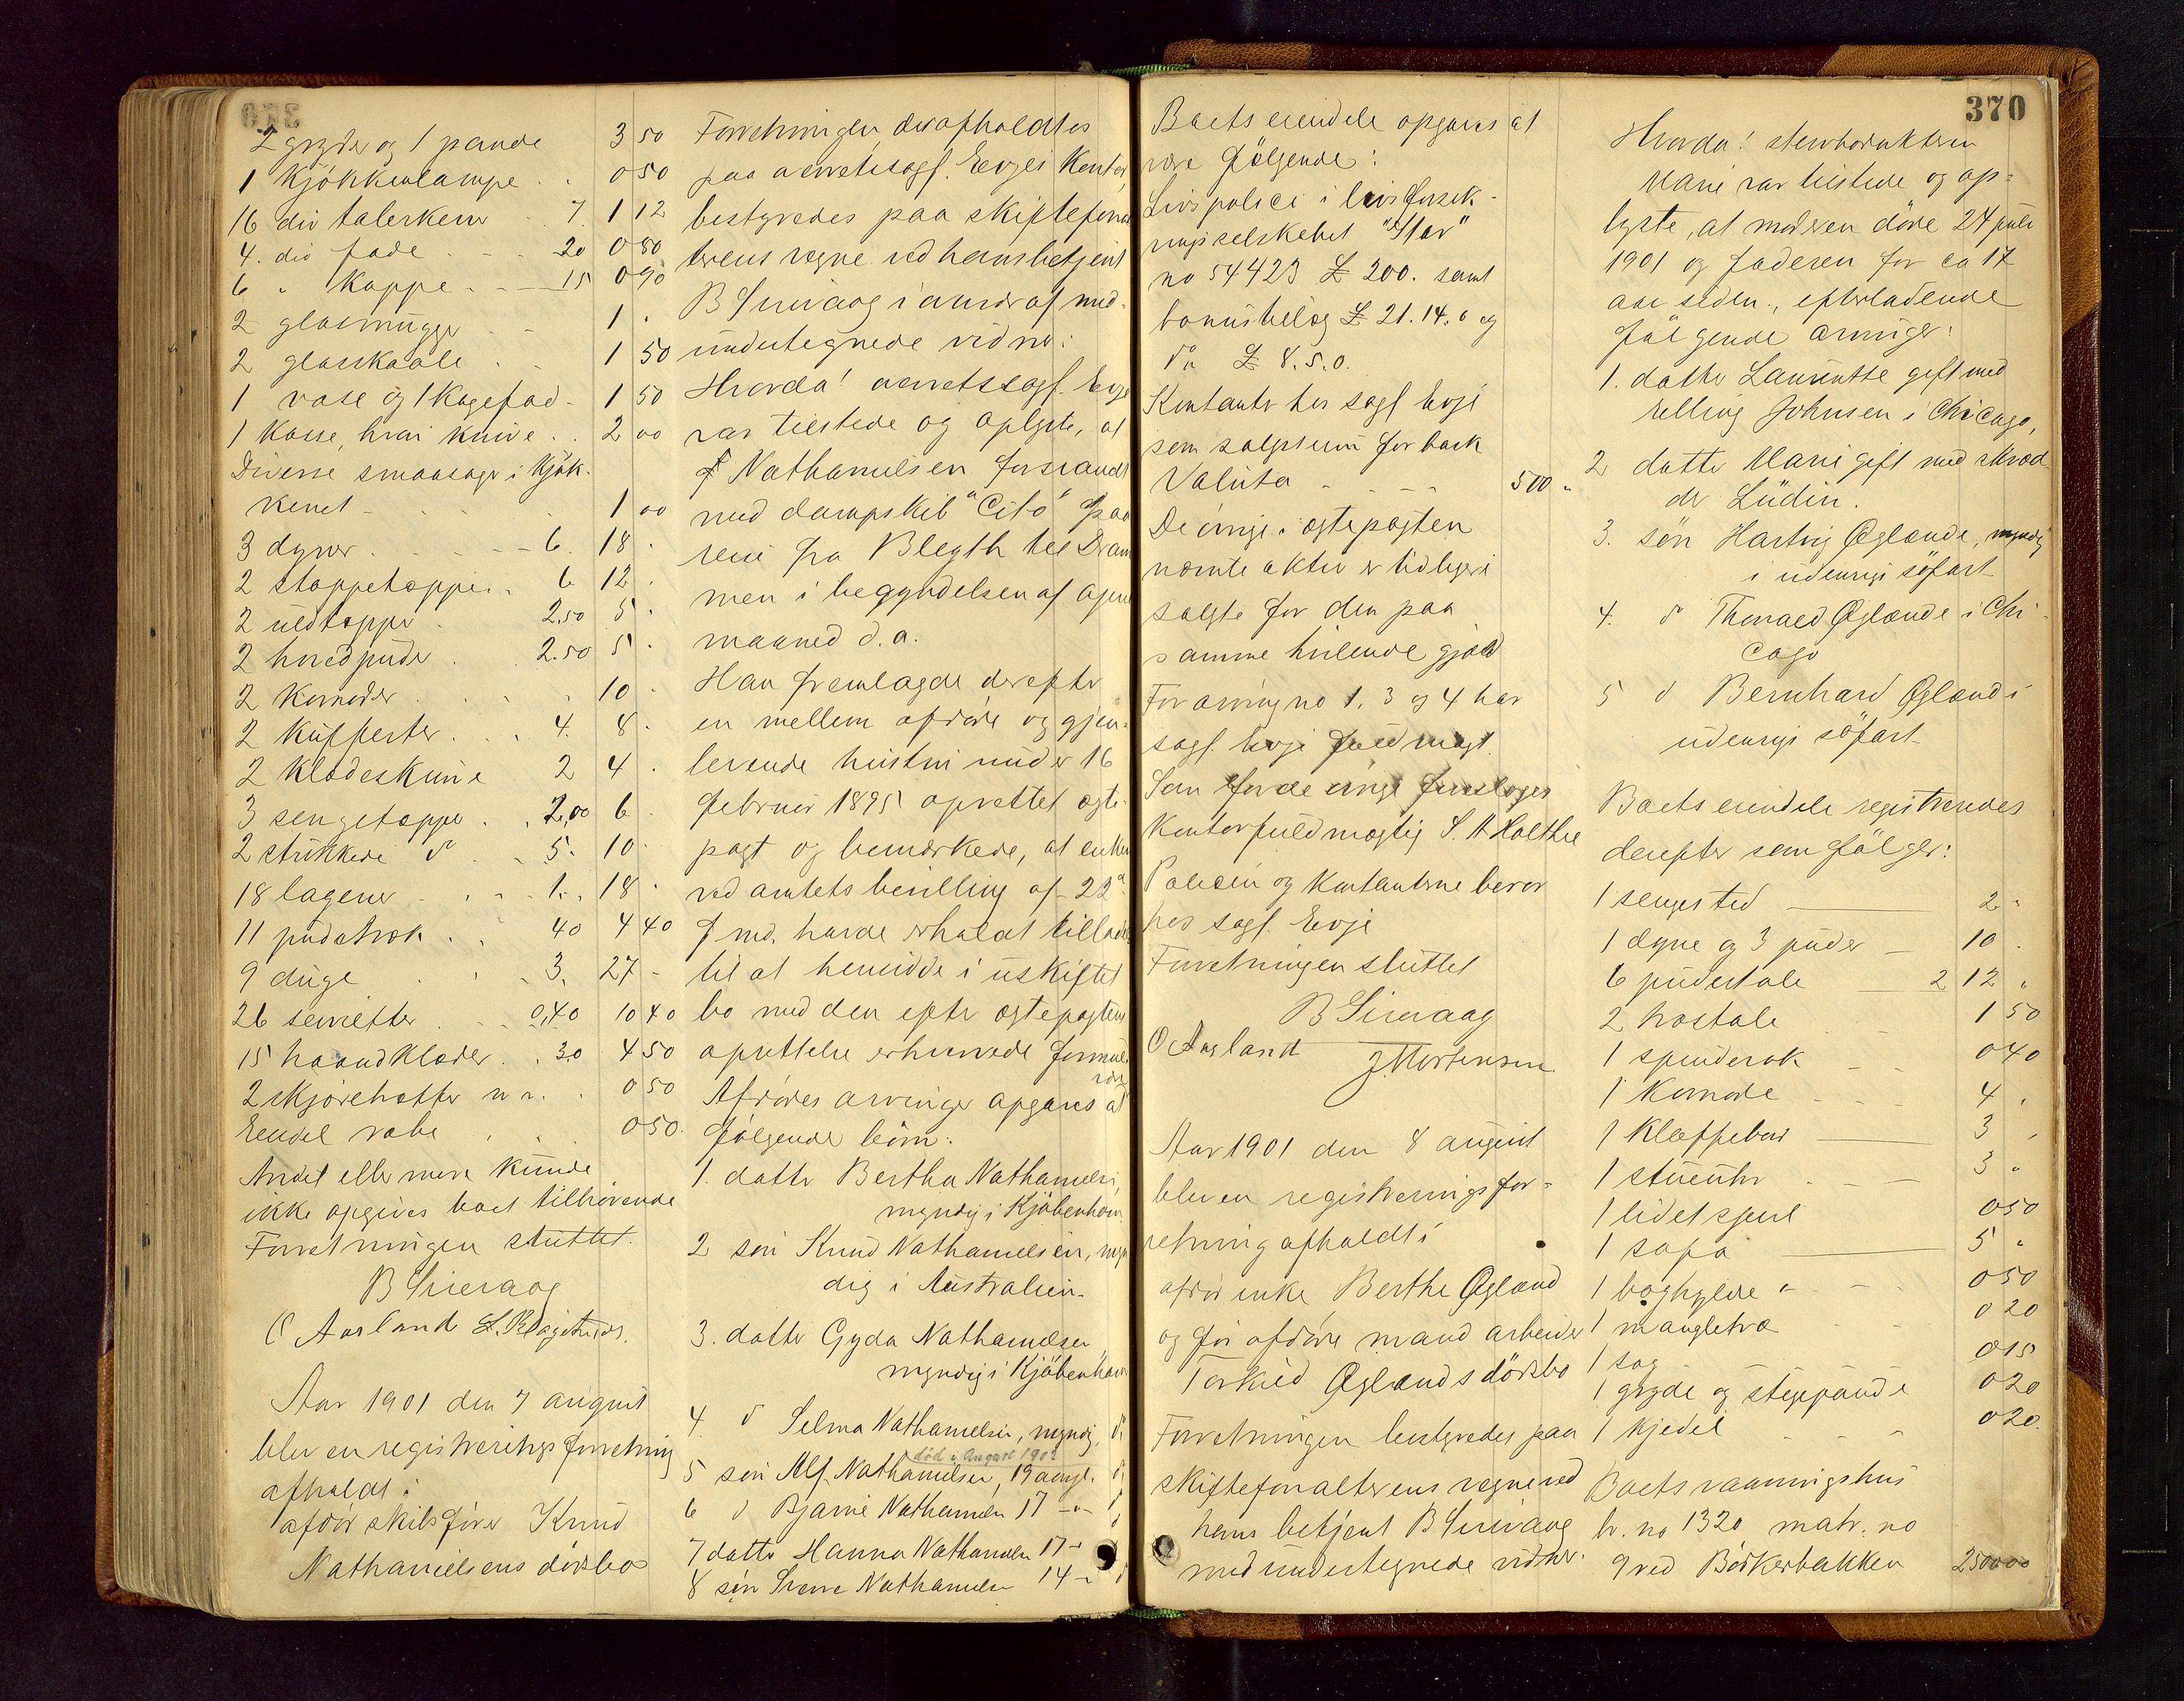 2 gryder og 1 pande 3 50
1 Kjökkenlampe . . 0 50
16 div talerkener . 7 1 12
4. div fade . . . 20 0 80
6 " Koppe . . 15 0 90
2 glasmugger . . 1 .
2 glasskaale . . 1 50
1 vase og 1 Kagefad . 1 50
1 Kasse, hvori Knive . . 2 00
Diverse smaasager i Kjök-
kenet . . . 1 00
3 dyner . . . . 6. 18 .
2 stoppetæpper . 6 12 .
2 uldtæpper . 2.50 5 .
2 hovedpuder . 2.50 5 .
2 Komoder . . . 10 .
2 Kufferter . . . 4. 8 .
2 Klædeskurve 2 4 .
3 sengetæpper . . 2,00 6 .
2 strikkede do . . 5. 10 .
18 lagener . . . 1. . 18 .
11 pudetræk . . 40 4 40
9 duge . . . 3. 27 -
26 servietter . . 0,40 10 40
15 haandklæder . . 30 4 50
2 Skjörehatter . . 0 50
Eendel 0 50.
Andet eller mere kunde
ikke opgives boet tilhörende
Forretningen sluttet.
B Sirevaag
O Aarland
Aar 1901 den 7 august
blev en registreringsforretning
afholdt i
afdöd skibsförer Knud
Nathanielsens dödsbo
Forretningen, der afholdtes
paa overretssagf. Evjes Kontor,
bestyredes paa skifteforval
terens vegne ved hans betjent
B Sirevaag i overvær af med-
undertegnede vidner:
Hvorda! overretssagf. Evje
var tilstede og oplyste, at
Nathanielsen forsvandt
med dampskib "Cito" paa
reise fra Blyth til Dram
men i begyndelsen af april
maaned d. a.
Han fremlagde derefter
en mellem afdöde og gjen-
levende hustru under 16
februar 1895 oprettet ægte-
pagt og bemærkede, at enken
ved amtets bevilling af 22de
f. md. havde erholdt tilladelse
til at hensidde i uskiftet
bo med den efter ægtepagtens
oprettelse erhvervede formue.
Afdödes arvinger opgaves at være
fölgende börn:
1. datter Bertha Nathanielsen,
myndig i Kjöbenhavn
2 sön Knud Nathanielsen, myn
dig i Australien.
3. datter Gyda Nathanielsen
myndig i Kjöbenhavn
4. do Selma Nathanielsen, myndig, do
död i August 1902
5 sön Alf Nathanielsen, 19 aar gl. do
6 do Bjarne Nathanielsen 17 -"- do
7 datter Hanna Nathanielsen 17 -
8 sön Sverre Nathanielsen 14 -
370
Boets eiendele opgaves at
være fölgende:
Livspolice i livsforsik-
ringsselskabet "Star"
no 54423 £ 200. samt
bonusbelög £ 21.14.6 og
do £ 8.5.0.
Kontanter hos sagf Evje
som salgssum for bark
Valuta . . . 500 "
De övrige i ægtepagten
nævnte aktier er tidligere
solgte for den paa
samme hvilende gjæld
For arving no 1, 3 og 4 har
sagf. Evje fuldmagt.
Som for de övrige foresloges
Kontorfuldmægtig S. A Holthe
Policen og Kontanterne beror
hos sagf. Evje
Forretningen sluttet
B Sirevaag
O Aarland J Mortensen
Aar 1901 den 8 august
blev en registreringsfor-
retning afholdt i
afdöd enke Berthe Ogland
og för afdöde mand arbeider
Torkild Oglands dödsbo
Forretningen bestyredes paa
skifteforvalterens vegne ved
hans betjent B Sirevaag
med undertegnede vidner.
Hvorda! stervbodatteren
Marie var tilstede og op-
lyste, at moderen döde 24 juli
1901 og faderen for ca 17
aar siden, efterladende
fölgende arvinger:
1. datter Lauentse gift med
Elling Johnsen i Chicago,
2 datter Marie gift med skræd
der Lüdin.
3. sön Hartvig Oglænde, myndig
i udenrigs söfart
4. do Thorvald Oglænde i Chi-
cago
5 do Bernhard Ogland i
udenrigs söfart
Boets eiendele registreredes
derefter som fölger:
1 sengested 2 "
1 dyne og 3 puder 10 .
6 pindestole 2 12 "
2 stole 1 50
1 spinderok 0 40
1 Komode 4 .
1 Klaffebord 3 "
1 stueuhr 3 "
1 lidet speil 0 50
1 sofa 5 "
1 boghylde 0 50
1 mangletræ 0 20
1 sag 0 15
1 gryde og stegepande 0 20
1 kjedel 0 20
Boets vaaningshus
br. no 1320 matr. no
9 ved Bödkerbakken 2500 00